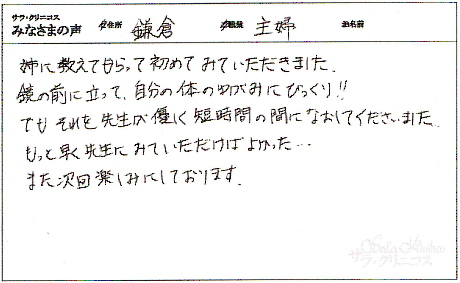 サラ・クリニコス
みなさまの声 ご住所 鎌倉 ご職業 主婦 お名前
姉に教えてもらって初めてみていただきました。
鏡の前に立って、自分の体のゆがみにびっくり!!
でもそれを先生が優しく短時間の間になおしてくださいました
もっと早く先生にみていただけばよかった…
また次回楽しみにしております。
サラ・クリニコス